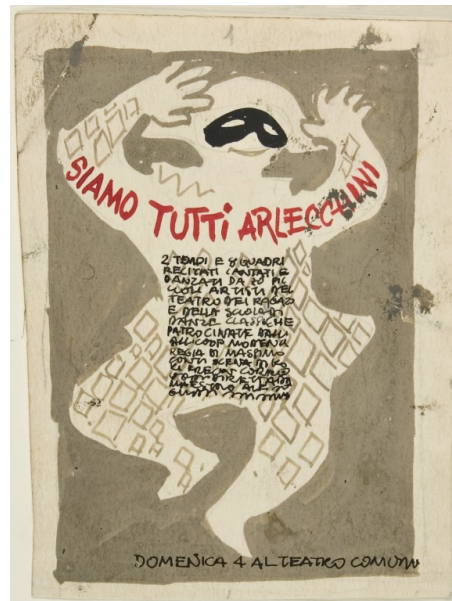 SIAMO TUTTI ARLECCHINI
2 TEMPI E 8 QUADRI
RECITATI CANTATI E
DANZATI DA 80 PIC
COLI ARTISTI DEL
TEATRO DEI RAGAZZI
E DELLA SCUOLA DI
DANZE CLASSICHE
PATROCINATE DALL
MODENA
REGIA DI MASSIMO
CONTI SCENA DI
DOMENICA 4 AL TEATRO COMUN